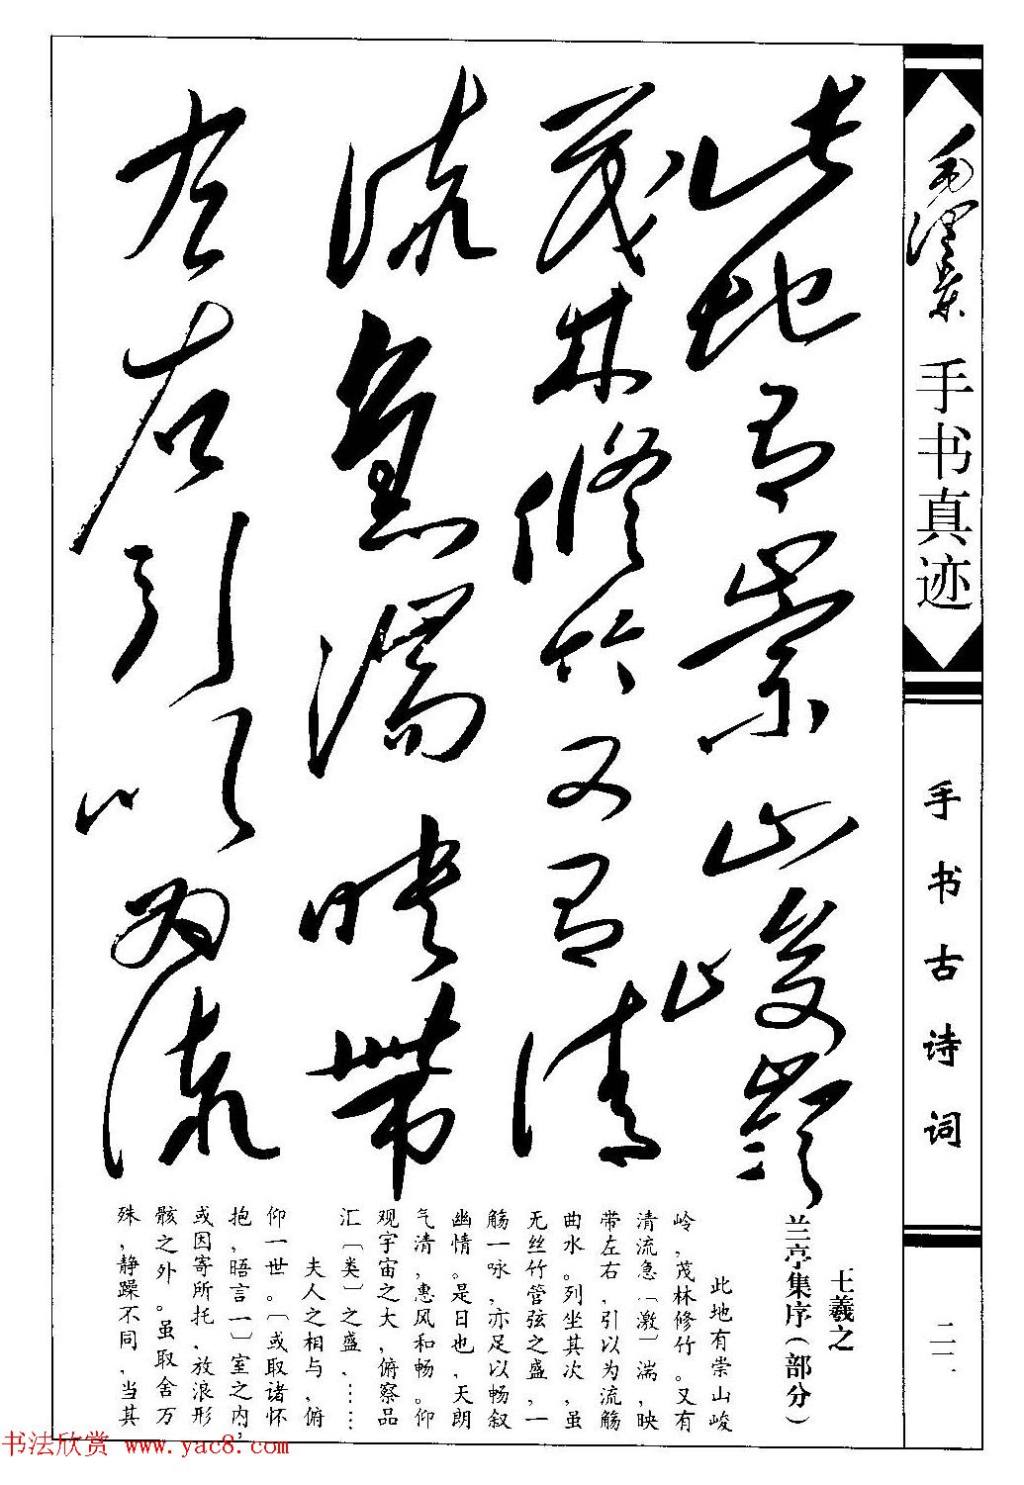 毛泽东
手书真迹
手书古诗词
二一
此地有崇山峻岭
茂林修竹又有清
流急湍映带
左右引以为流
王羲之
兰亭集序（部分）
此地有崇山峻
岭，茂林修竹。又有
清流急〔激〕湍，映
带左右，引以为流觞
曲水。列坐其次，虽
无丝竹管弦之盛，一
觞一咏，亦足以畅叙
幽情。是日也，天朗
气清，惠风和畅。仰
观宇宙之大，俯察品
汇〔类〕之盛，……
夫人之相与，俯
仰一世。〔或取诸怀
抱，晤言一〕室之内，
或因寄所托，放浪形
骸之外。虽取舍万
殊，静躁不同，当其
书法欣赏 www.yac8.com